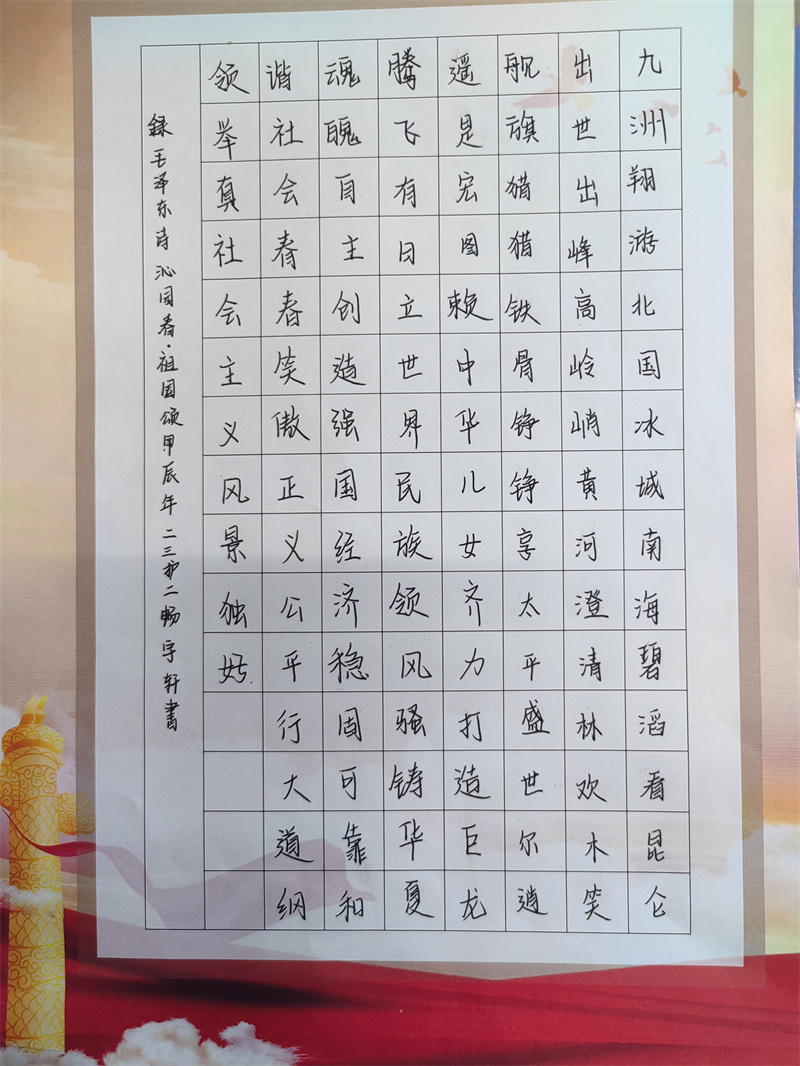 九洲翔游北国冰城南海碧滔看昆仑
出世出峰高岭峭黄河澄清林欢木笑
舰旗猎猎铁骨铮铮享太平盛世尔逍
遥是宏图赖中华儿女齐力打造巨龙
腾飞有日立世界民族领风骚铸华夏
魂魄自主创造强国经济稳固可靠和
谐社会春春笑傲正义公平行大道纲
领举真社会主义风景独好
録毛泽东诗沁园春·祖国颂甲辰年二三二畅宇轩書